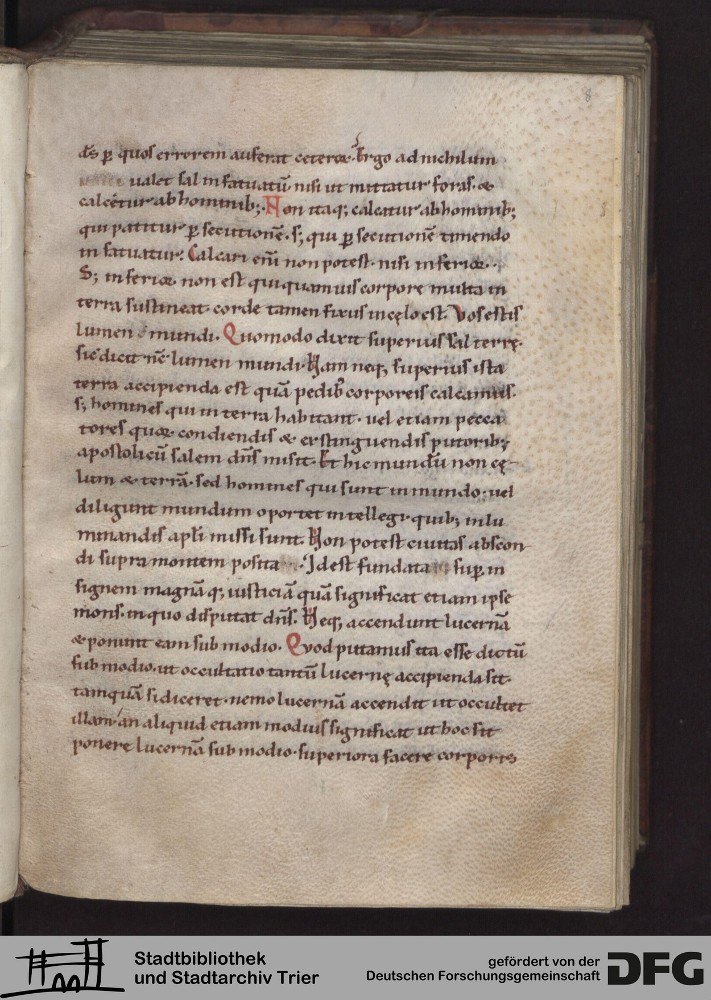 8
ds̄ p̄ quos errorem auferat ceterorꝫ. Ergo ad nichilum
ualet sal infatuatū nisi ut mittatur foras. &
calcetur ab hominib;. Non itaq; calcatur ab hominib;
qui patitur p̄secutionē. s; qui p̄secutionē timendo
infatuatur. Calcari enī non potest. nisi inferior.
S; inferior non est qui quamuis corpore multa in
terra sustineat. corde tamen fixus in cęlo est. Vos estis
lumen mundi. Quomodo dixit superius sal terrę.
sic dicit nc̄ lumen mundi. Nam neq; superius ista
terra accipienda est quā pedib; corporeis calcamus.
s; homines qui in terra habitant. uel etiam pecca
tores quor condiendis & exstinguendis putorib;
apostolicū salem dn̄s misit. Et hic mundū non cę
lum & terrā. sed homines qui sunt in mundo. uel
diligunt mundum oportet intellegi. quib; inlu
minandis apl̄i missi sunt. Non potest ciuitas abscon
di supra montem posita. Id est fundata sup̄ in
signem magnā q; iusticiā quā significat etiam ipse
mons. in quo disputat dn̄s. Neq; accendunt lucernā
& ponunt eam sub modio. Quod putamus ita esse dictū
sub modio. ut occultatio tantū lucernę accipienda sit.
tamquā si diceret. nemo lucernā accendit ut occultet
illam. an aliquid etiam modius significat ut hoc sit
ponere lucernā sub modio. superiora facere corporis
Stadtbibliothek
und Stadtarchiv Trier
gefördert von der
Deutschen Forschungsgemeinschaft
DFG